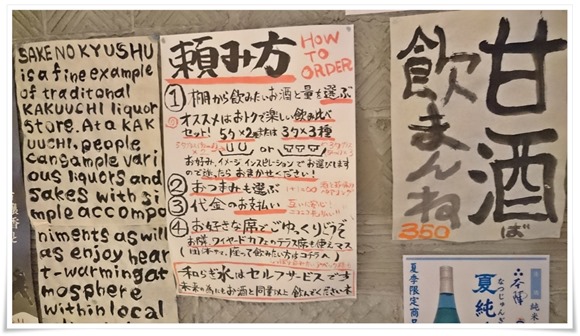 SAKE NO KYUSHU
is a fine example
of traditonal
KAKUUCHI liquor
store. At a KAK
UUCHI, people
can sample vari
ous liquors and
sakes with si
mple accompa
niments as will
as enjoy hear
t-warming at
mosphere
within local
頼み方
HOW TO ORDER
① 棚から飲みたいお酒と量を選ぶ
オススメはおトクで楽しい飲み比べ
セット! 5勺×2種または3勺×3種
or
お好み、イメージ、インスピレーションでお選びします
ので迷ったら おまかせください!
② おつまみも選ぶ
③ 代金のお支払い
④ お好きな席でごゆっくりどうぞ
お隣、ワイヤードカフェのテラス席も使えマス
和らぎ水はセルフサービスです
未来の為にもお酒と同量以上飲んでくださいネ
甘酒ば
飲まんね
350
夏季限定商品
夏純
なつじゅんぎん
純米